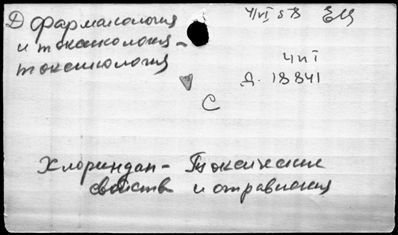 Д фармакология
и токсикология -
токсикология
ЧиІ
Д. 18841
С
Хлориндан - Токсические
свойства и отравления